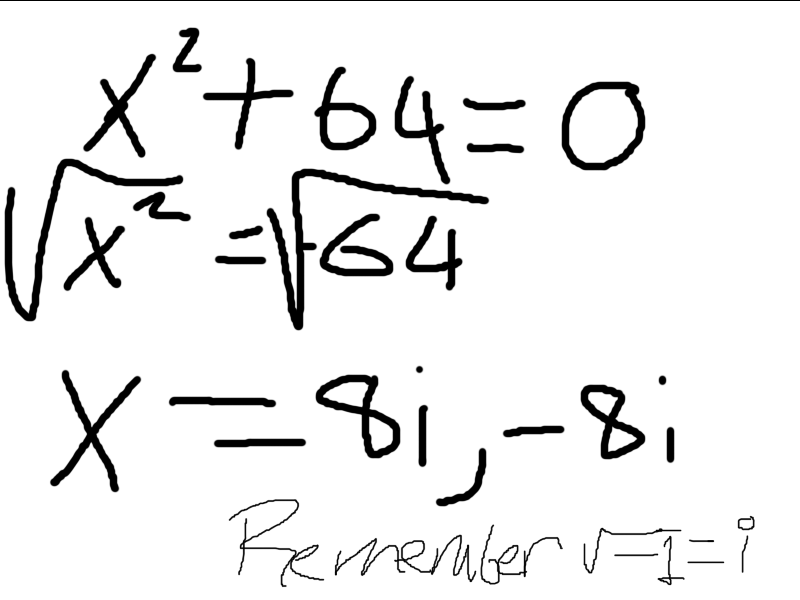 x² + 64 = 0
√x² = √-64
x = 8i, -8i
Remember √-1 = i